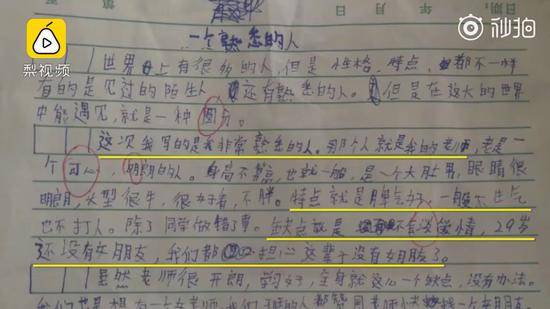 梨视频
秒拍
日期:
年 月 日
一个熟悉的人
世界上有很多的人,但是性格、特点、都不一样
有的是见过的陌生人 还有熟悉的人。但是在这大的世界
中能遇见,就是一种圆分。
这次我写的是我非常熟悉的人。那个人就是我的老师,老是一
个可心 明朗的人。身高不算高,也就一般,是一个大肚男,眼睛很
明朗,头型很牛,很好看,不胖。特点就是脾气好,一般不生气
也不打人。除了同学做错了事。缺点就是不会谈爱情,29岁
还没有女朋友,我们都担心这辈子没有女朋友了。
虽然老师很开朗,学习好,全身就这么一个缺点,没有办法。